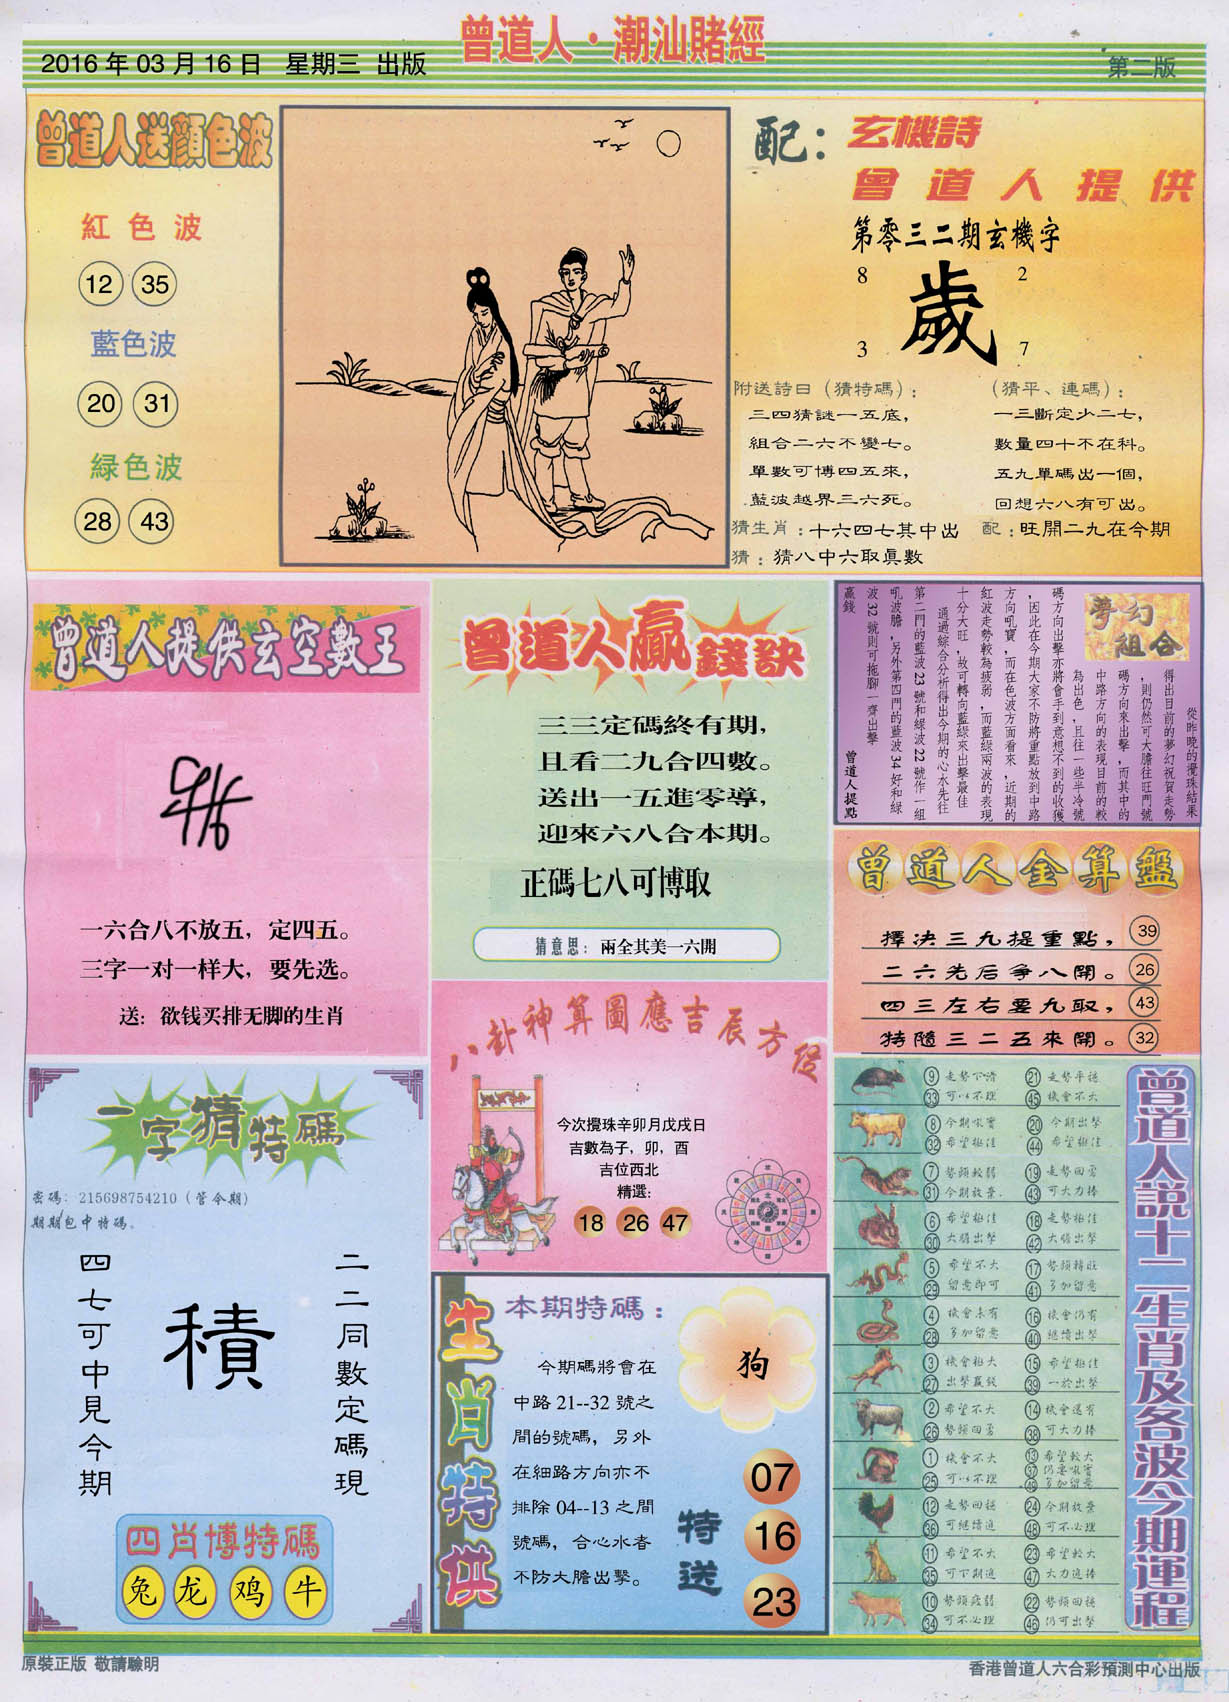 2016年03月16日 星期三 出版
曾道人·潮汕賭經
第二版
曾道人送顏色波
紅色波
12 35
藍色波
20 31
緑色波
28 43
配：
玄機詩
曾道人提供
第零三二期玄機字
8 2
歲
3 7
附送詩曰（猜特碼）：
三四猜謎一五底，
組合二六不變七。
單數可博四五來，
藍波越界三六死。
（猜平、連碼）：
一三斷定少二七，
數量四十不在科。
五九單碼出一個，
回想六八有可出。
猜生肖：十六四七其中出
配：旺開二九在今期
猜：猜八中六取眞數
曾道人提供玄空數王
一六合八不放五，定四五。
三字一对一样大，要先选。
送：欲钱买排无脚的生肖
曾道人贏錢訣
三三定碼終有期，
且看二九合四數。
送出一五進零導，
迎來六八合本期。
正碼七八可博取
猜意思：兩全其美一六開
夢幻組合
從昨晚的攪珠結果
得出目前的夢幻祝賀走勢
，則仍然可大膽往旺門號
碼方向來出擊，而其中的
中路方向的表現目前的較
為出色，且往一些半冷號
碼方向出擊亦將會手到意想不到的收獲
，因此在今期大家不防將重點放到中路
方向吼寶，而在色波方面看來，近期的
紅波走勢較為疲弱，而藍綠兩波的表現
十分大旺，故可轉向藍綠來出擊最佳
通過綜合分析得出今期的心水先往
第二門的藍波23號和綠波22號作一組
吼波膽，另外第四門的藍波34好和綠
波32號則可拖腳一齊出擊
贏錢
曾道人提點
曾道人金算盤
擇決三九提重點， 39
二六先后爭八開。 26
四三左右要九取， 43
特隨三二五來開。 32
八卦神算圖應吉辰方位
今次攪珠辛卯月戊戌日
吉數為子，卯，酉
吉位西北
精選：
18 26 47
一字猜特碼
密碼：215698754210（管令期）
期期包中特碼。
二二同數定碼現
積
四七可中見今期
四肖博特碼
兔 龙 鸡 牛
生肖特供
本期特碼：
狗
今期碼將會在
中路21--32號之
間的號碼，另外
在細路方向亦不
排除04--13之間
號碼，合心水者
不防大膽出擊。
特送
07
16
23
曾道人説十二生肖及各波今期運程
9 走勢下滑 21 走勢平穩
33 可以不理 45 機會不大
8 今期吼實 20 今期出擊
32 希望極佳 44 希望極佳
7 勢頭較弱 19 走勢回勇
31 今期放棄 43 可大力捧
6 希望極佳 18 走勢極佳
30 大膽出擊 42 大膽出擊
5 希望不大 17 勢頭轉旺
29 留意即可 41 多加留意
4 機會未有 16 機會仍有
28 多加留意 40 繼續出擊
3 機會極大 15 希望極佳
27 出擊贏錢 39 一於出擊
2 希望不大 14 機會還有
26 勢頭回勇 38 可大力捧
1 機會不大 13 希望較大
25 可以不理 37 仍要吼實
49 多加留意
12 走勢回穩 24 今期放棄
36 可繼續追 48 可不必理
11 希望不大 23 希望較大
35 可下期追 47 大力追捧
10 勢頭疲弱 22 勢頭回穩
34 可不必理 46 仍可出擊
原裝正版 敬請驗明
香港曾道人六合彩預測中心出版